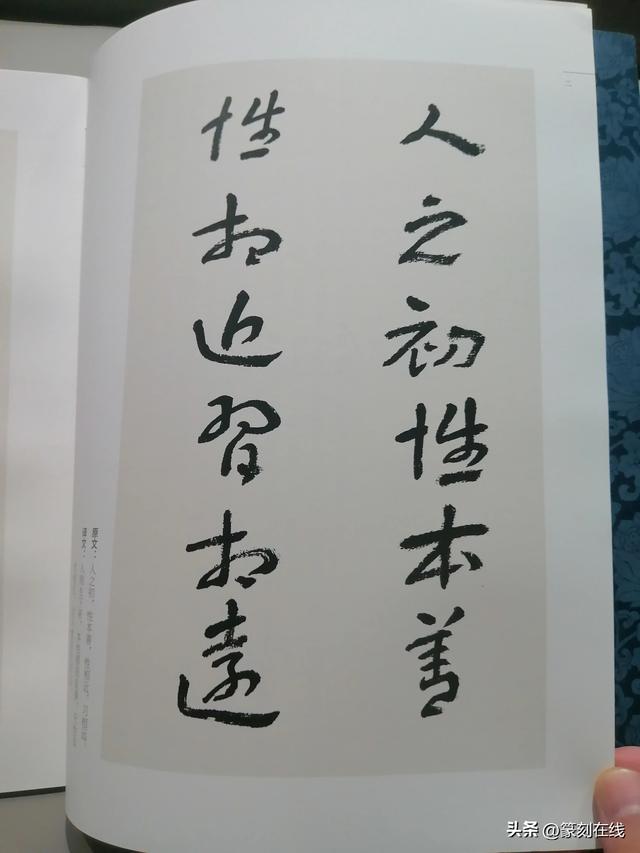 人之初性本善
性相近習相遠
原文：人之初，性本善，性相近，习相远。
译文：人
二
头条 @篆刻在线